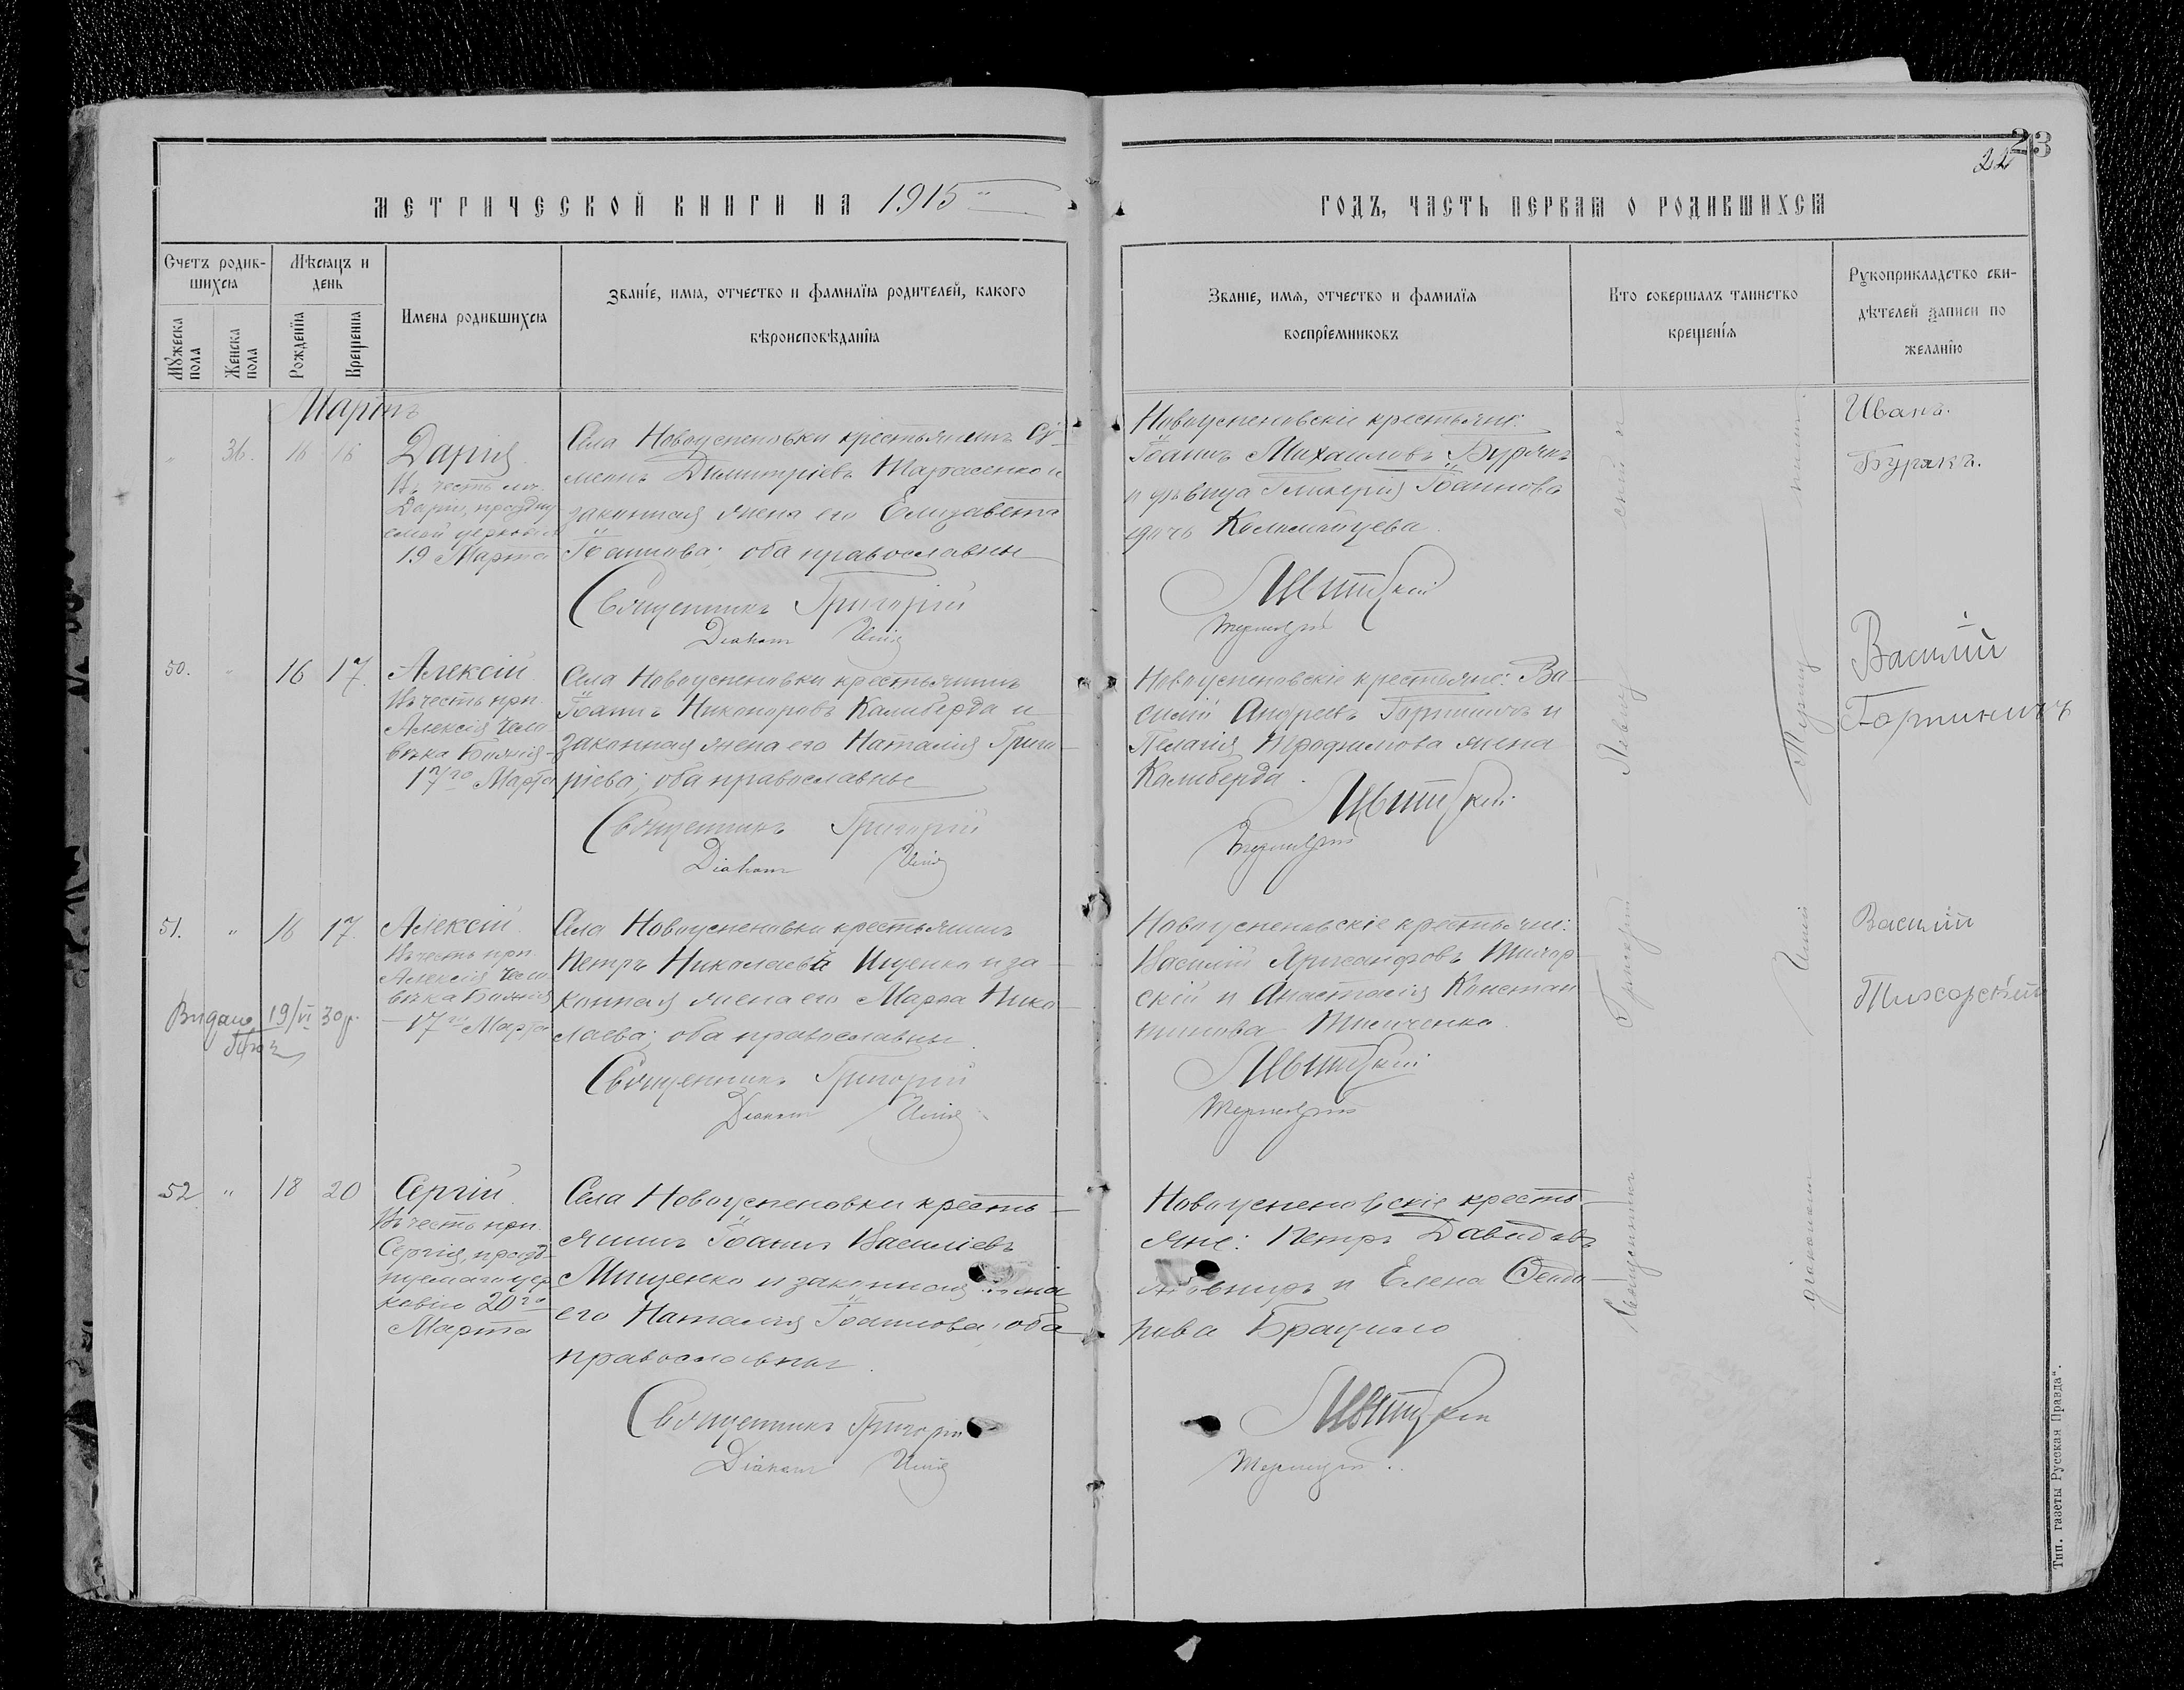 23
22
МЕТРИЧЕСКОЙ КНИГИ НА 1915
ГОДЪ, ЧАСТЬ ПЕРВАЯ О РОДИВШИХСЯ
Счетъ родившихся
Мужеска пола
Женска пола
Мѣсяцъ и день
Рожденїя
Крещенїя
Имена родившихся
Званїе, имя, отчество и фамилїя родителей, какого
вѣроисповѣданїя
Званїе, имя, отчество и фамилїя
воспрїемниковъ
Кто совершалъ таинство
крещенїя
Рукоприкладство сви-
дѣтелей записи по
желанїю
Мартъ
" 36. 16 16
Дарія
Въ честь
Дарiи, праздну
емой церковію
19 Марта
Села Новоуспеновки крестьянинъ Сѵ-
меонъ Димитріевъ Тарасенко и
законная жена его Елизавета
Іоаннова; оба православные
Священникъ Григорій
Діаконъ
Новоуспеновскіе крестьяне:
Іоаннъ Михаиловъ Бурякъ
и дѣвица Гликерія Іоаннова
дочь Коломойцева.
Ивитскій
Иванъ
Бурякъ.
50. " 16 17.
Алексій
Въ честь прп.
Алексія чело
вѣка Божія-
17го Марта
Села Новоуспеновки крестьянинъ
Іоаннъ Никоноровъ Калиберда и
законная жена его Наталія Григо-
ріева; оба православные
Священникъ Григорій
Діаконъ
Новоуспеновскіе крестьяне: Ва-
силій Андреевъ Горпиничъ и
Пелагія Трофимова жена
Калиберда.
Ивитскій
Василій
Горпиничъ
51. " 16 17.
Алексій
Въ честь прп.
Алексія чело
вѣка Божія
-17го Марта
Видано 19/VI 30 р.
Села Новоуспеновки крестьянинъ
Петръ Николаевъ Ищенко и за-
конная жена его Марѳа Нико-
лаева; оба православные
Священникъ Григорій
Діаконъ
Новоуспеновскіе крестьяне:
Василій Тихор-
скій и Анастасія Констан
тинова Тимченко
Ивитскій
Василій
Тихорскій
52 " 18 20
Сергій
Въ честь прп.
Сергія, празд-
нуемаго цер
ковію 20го
Марта
Села Новоуспеновки кресть-
янинъ Іоаннъ Василіевъ
Мищенко и законная жена
его Наталія Іоаннова, оба
православные.
Священникъ Григорій
Діаконъ
Новоуспеновскіе кресть-
яне: Петръ Давидовъ
и Елена Ѳеодо-
рова
Ивитскій
Священникъ Григорій
діакономъ
Тип. газеты Русская Правда".